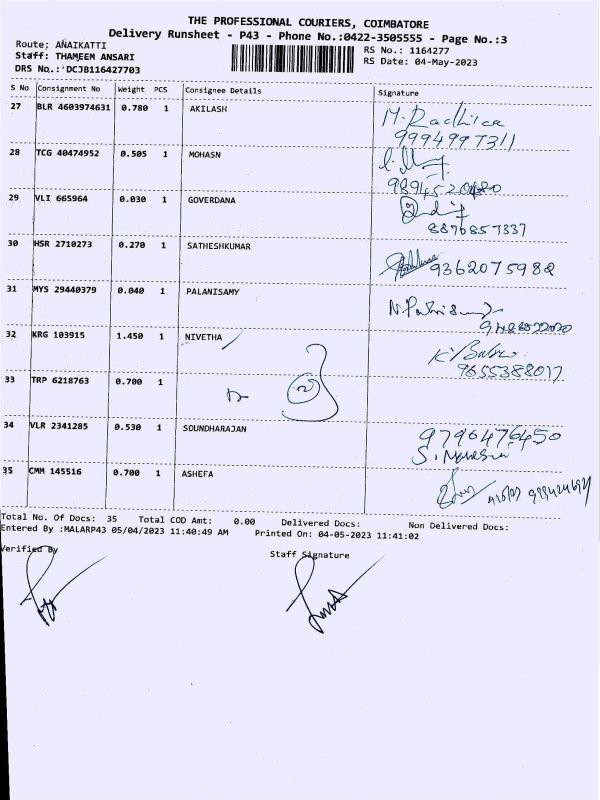 THE PROFESSIONAL COURIERS, COIMBATORE
Delivery Runsheet - P43 - Phone No.:0422-3505555 - Page No.:3
Route; ANAIKATTI
Staff: THAMEEM ANSARI
DRS No.:'DCJB116427703
RS No.: 1164277
RS Date: 04-May-2023
S No Consignment No Weight PCS Consignee Details Signature
27 BLR 4603974631 0.780 1 AKILASH M. Radhica
9994997311
28 TCG 40474952 0.505 1 MOHASN
9894520480
29 VLI 665964 0.030 1 GOVERDANA
8876857337
30 HSR 2710273 0.270 1 SATHESHKUMAR 9362075982
31 MYS 29440379 0.040 1 PALANISAMY
32 KRG 103915 1.450 1 NIVETHA K. Babu
9655388017
33 TRP 6218763 0.700 1
34 VLR 2341285 0.530 1 SOUNDHARAJAN 9790476450
35 CMM 145516 0.700 1 ASHEFA
Total No. Of Docs: 35 Total COD Amt: 0.00 Delivered Docs: Non Delivered Docs:
Entered By :MALARP43 05/04/2023 11:40:49 AM Printed On: 04-05-2023 11:41:02
Verified By Staff Signature